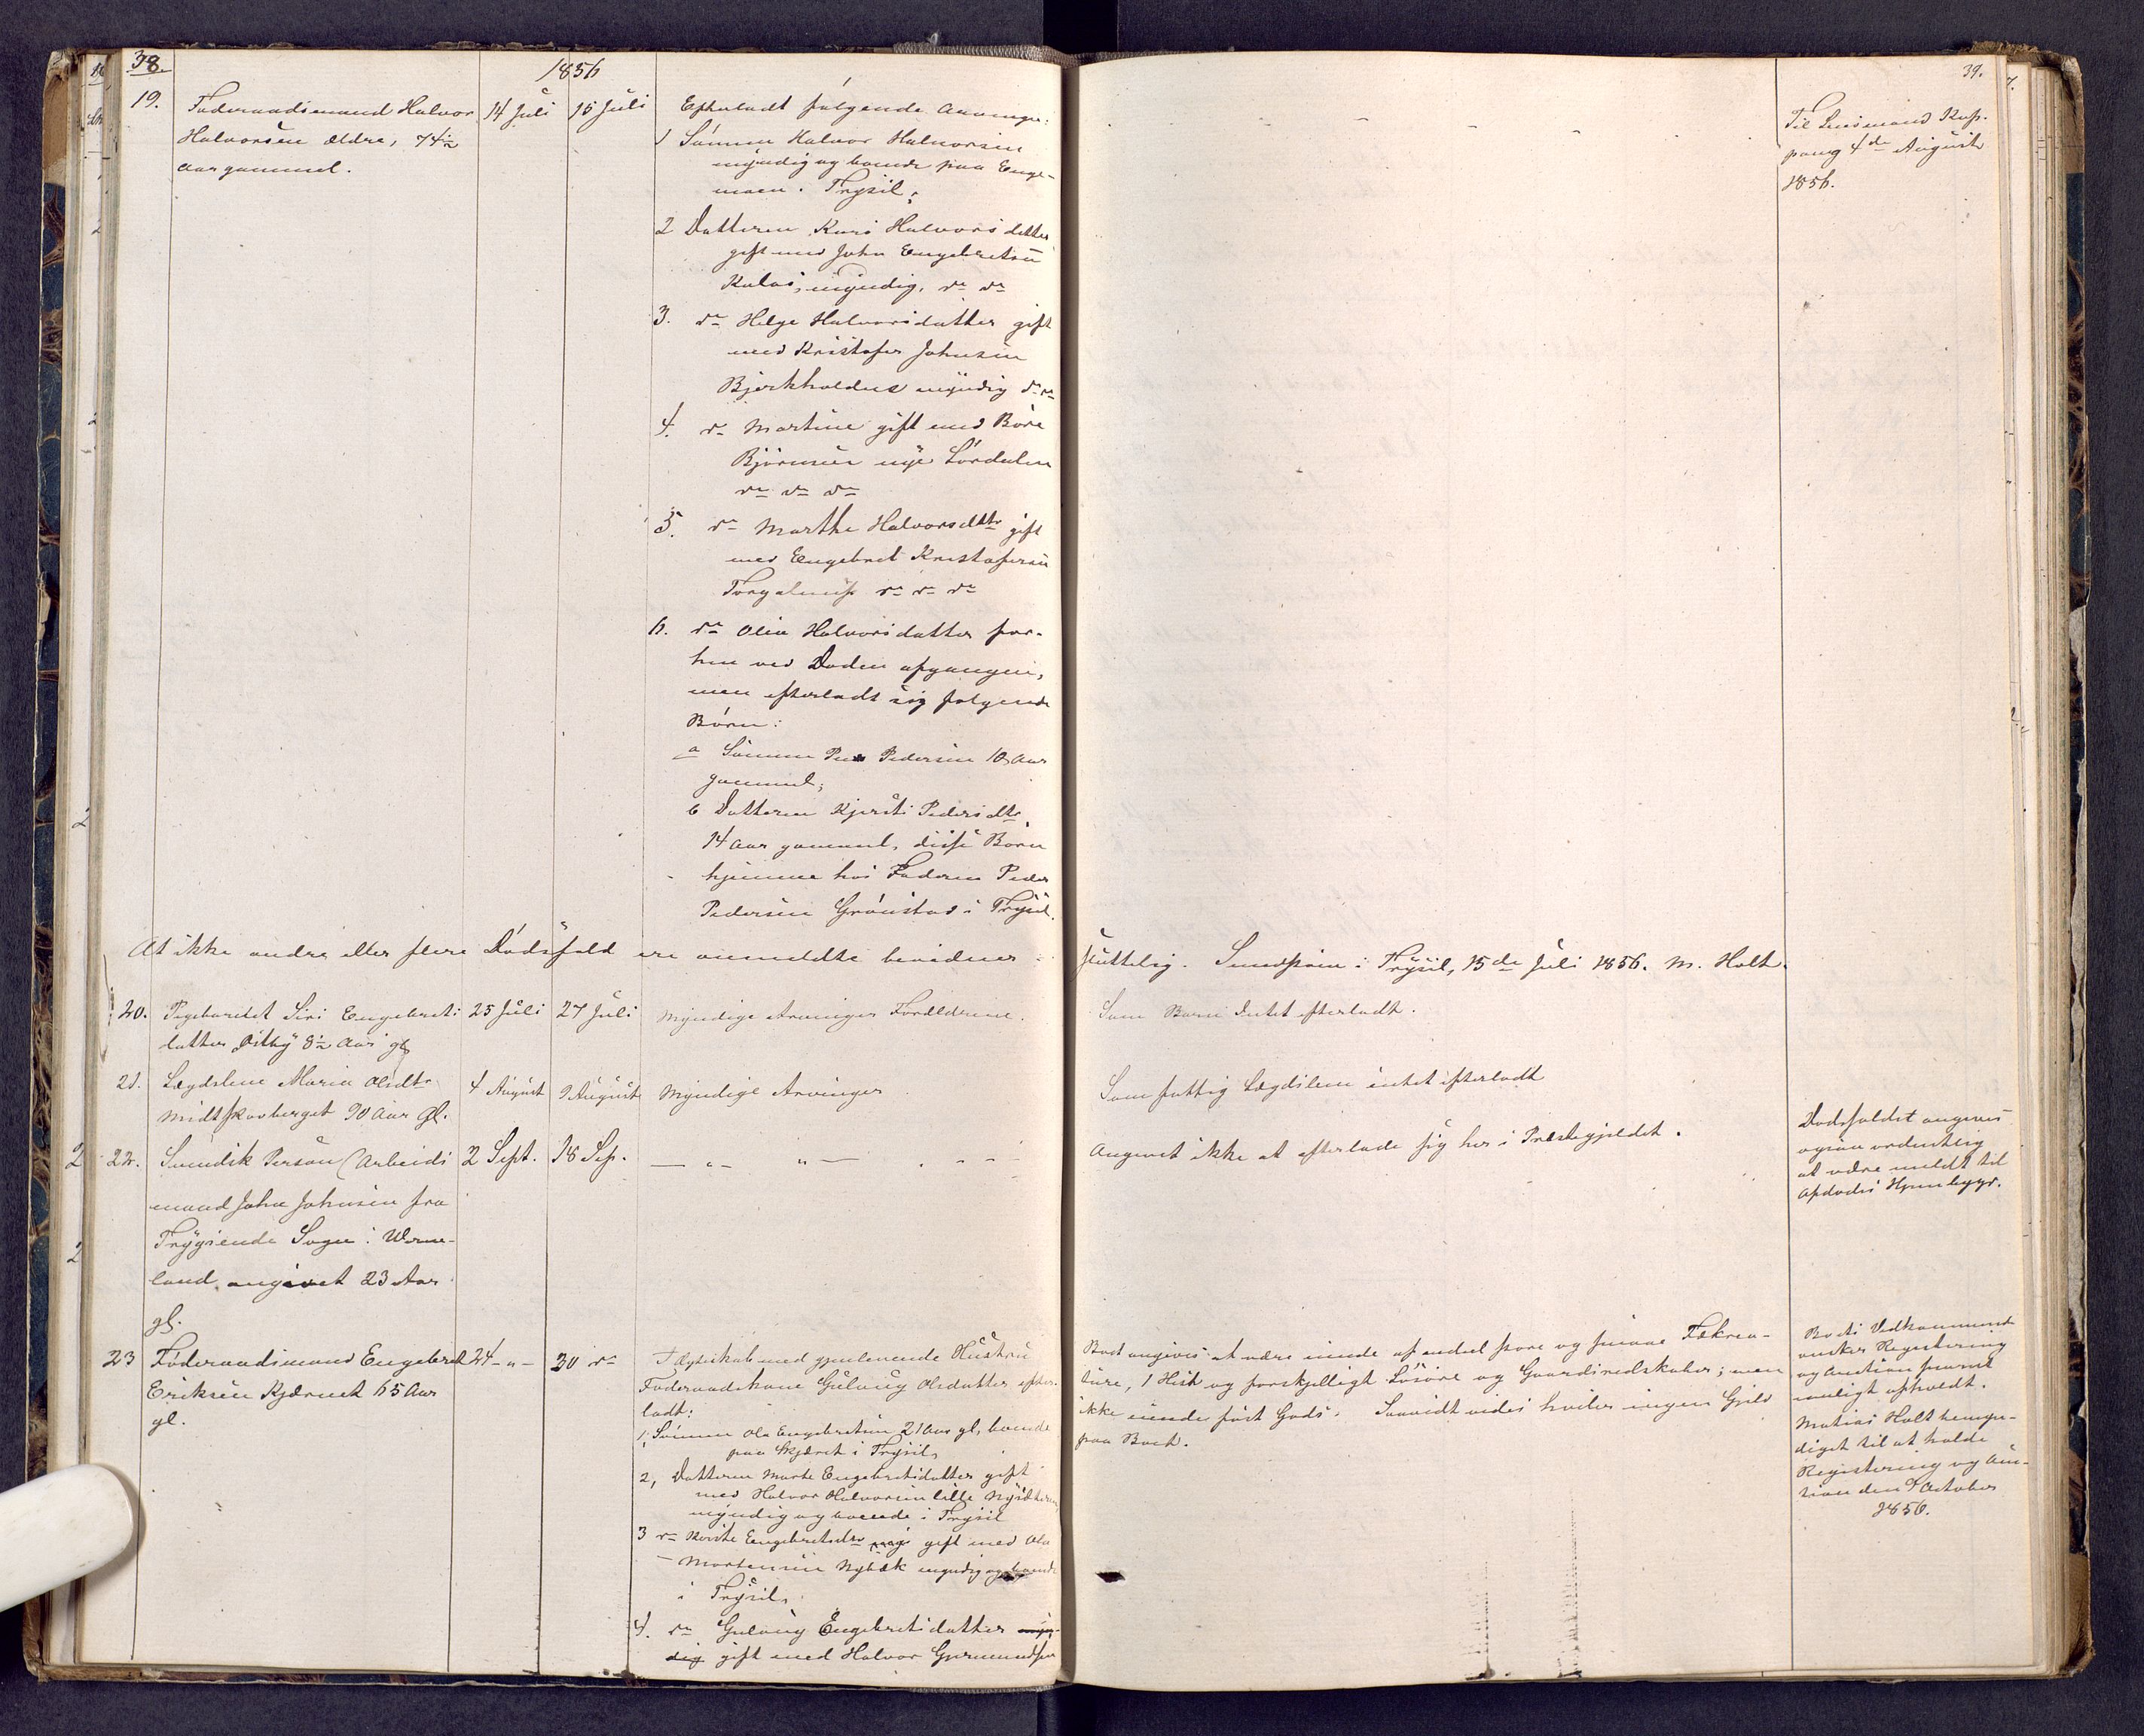 38.
1856
19.
Føderaadsmand Halvor
Halvorsen ældre, 74 1/2
Aar gammel.
14 Juli
15 Juli
Efterladt følgende Arvinger:
1 Sønnen Halvor Halvorsen
myndig og boende paa Enge-
moen i Trysil;
2 Datteren Kari Halvorsdatter
gift med John Engebretsen
myndig, do do
3. do Helge Halvorsdatter gift
med Kristofer Johnsen
myndig do do
4. do Martine gift med Baare
Bjørnsen nye Lørdalen
do do do
5. do Marthe Halvorsdttr gift
med Engebret Kristofersen
do do do
6. do Olia Halvorsdatter for-
hen ved Døden afgangen,
men efterladt sig følgende
Børn:
a Sønnen Peder Pedersen 10 Aar
gammel;
b Datteren Kjersti Pedersdtr
14 Aar gammel, disse Børn
hjemme hos Faderen Peder
Pedersen Grønstad i Trysil.
At ikke andre eller flere Dødsfald ere anmeldte bevidner
20.
Pigebarnet Siri Engebrets
datter Østby 8 1/2 Aar gl
25 Juli
27 Juli
Myndige Arvinger Forældrene.
21.
Lægdslem Maria Olsdtr
Midtskovberget 90 Aar gl.
4 August
9 August
Myndige Arvinger
22.
Svensk Person (Arbeids
mand John Johnsen fra
Sogn i Werme-
land angivet 23 Aar
gl.
2 Sept.
18 Sep.
— " — " — " —
23
Føderaadsmand Engebret
Eriksen Kjærnet 65 Aar
gl.
24 - " -
30 do
I Ægteskab med gjenlevende Hustru
Føderaadskone Gulaug Olsdatter efter-
ladt:
1, Sønnen Ole Engebretsen 21 Aar gl, boende
paa Kjæret i Trysil,
2, Datteren Marte Engebretsdatter gift
med Halvor Halvorsen lille Nysæteren,
myndig og boende i Trysil
3 do Engebretsdtr gift med Ola
Mortensen Nybæk myndig og boende
i Trysil,
4. do Gulaug Engebretsdatter myn-
dig gift med Halvor Gjermundsen
39.
Til Lensmand Kop-
pang 4de August
1856.
skuttelig. i Trysil, 15de Juli 1856. M. Holt.
Som Barn Intet efterladt.
Som fattig Lægdslem intet efterladt
Angivet ikke at efterlade sig her i Præstegjeldet.
Dødsfaldet angives
ogsaa ordentlig
at være meldt til
Afdødes Hjembygd.
Boet angives at være eiende af endel store og smaae Fækrea-
ture, 1 Hest og forskjelligt Løsøre og Gaardsredskaber; men
ikke eiende fast Gods. Saavidt vides hviler ingen Gjeld
paa Boet.
Boets Vedkommende
ønsker Registering
og Auction snarest
muligt afholdt.
Matias Holt bemyn-
diget til at holde
Registering og Auc-
tion den October
1856.